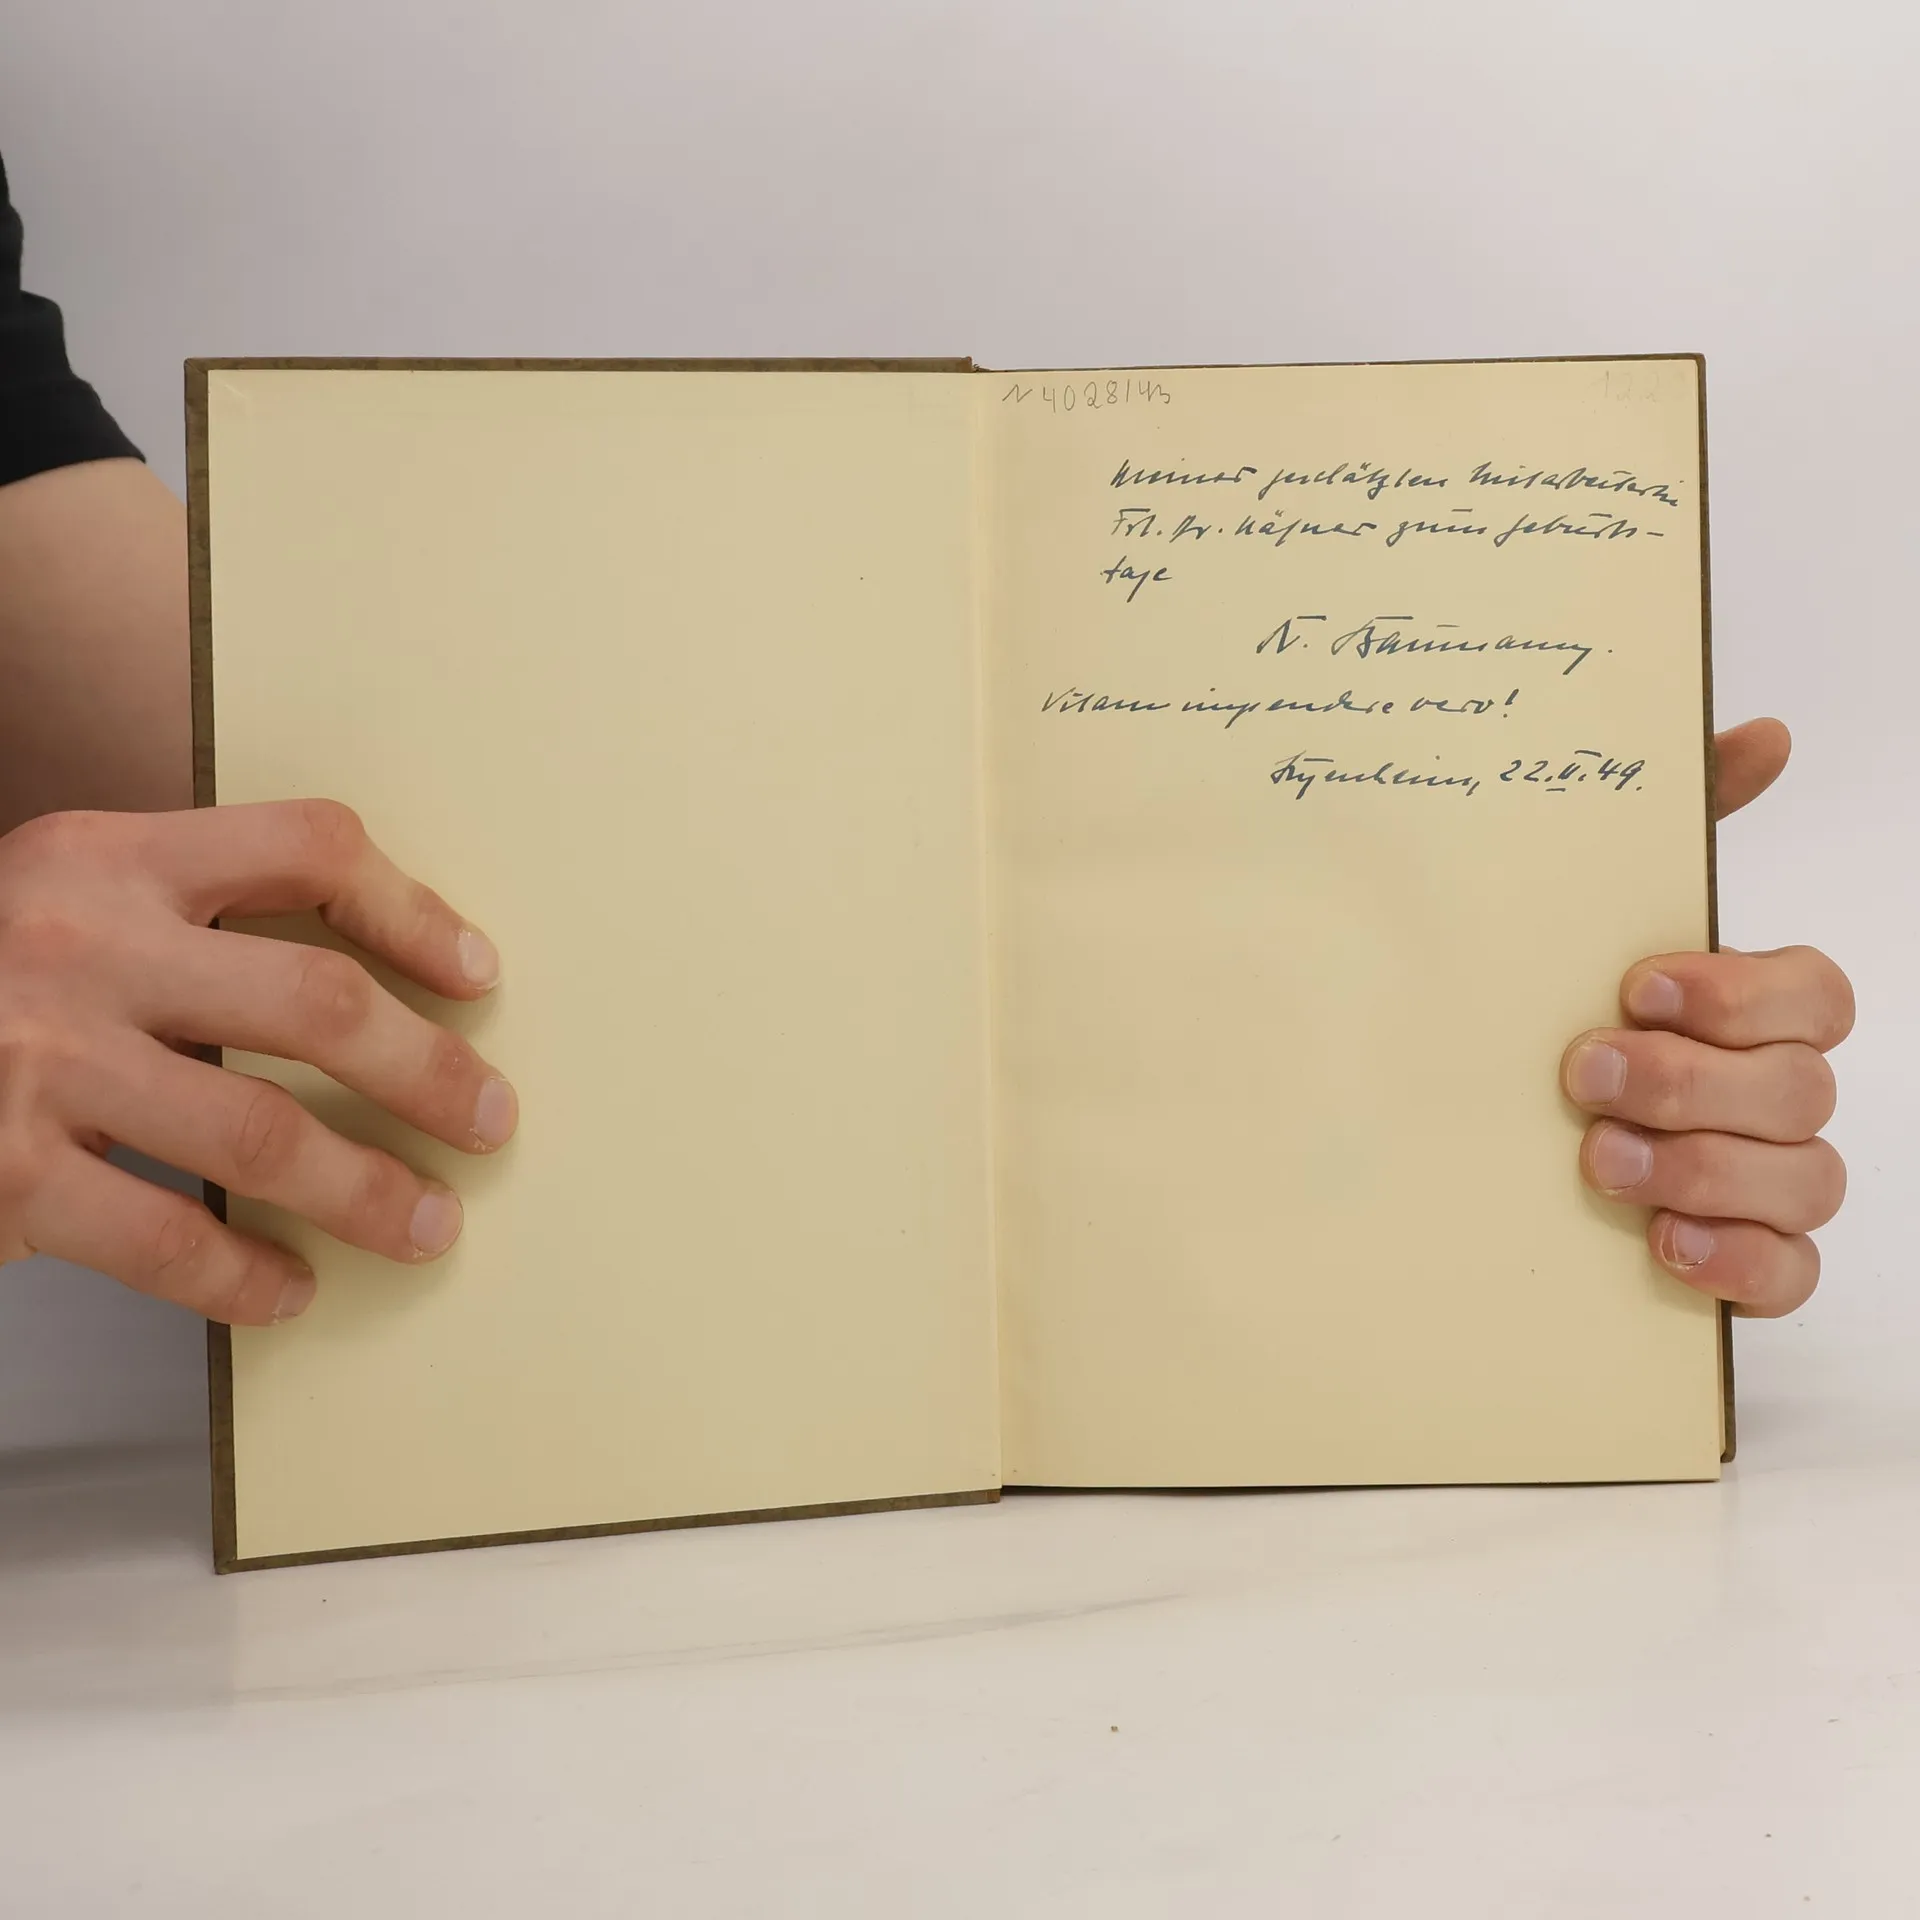 N 4028/43
Meiner geschätzten Mitarbeiterin
Frl. Dr. Käsner zum Geburts-
tage
N. Baumann.
Vitam impendere vero!
22.II.49.